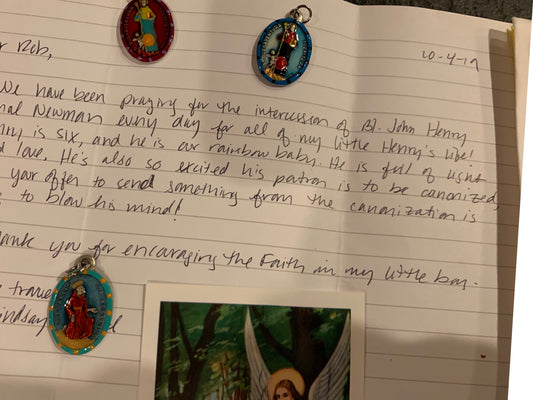 Rob,
10-4-19
We have been praying for the intercession of Bl. John Henry
Newman every day for all of my little Henry's life!
is six, and he is our rainbow baby. He is full of light
love. He's also so excited his patron is to be canonized,
your offer to send something from the canonization is
to blow his mind!
Thank you for encouraging the Faith in my little boy.